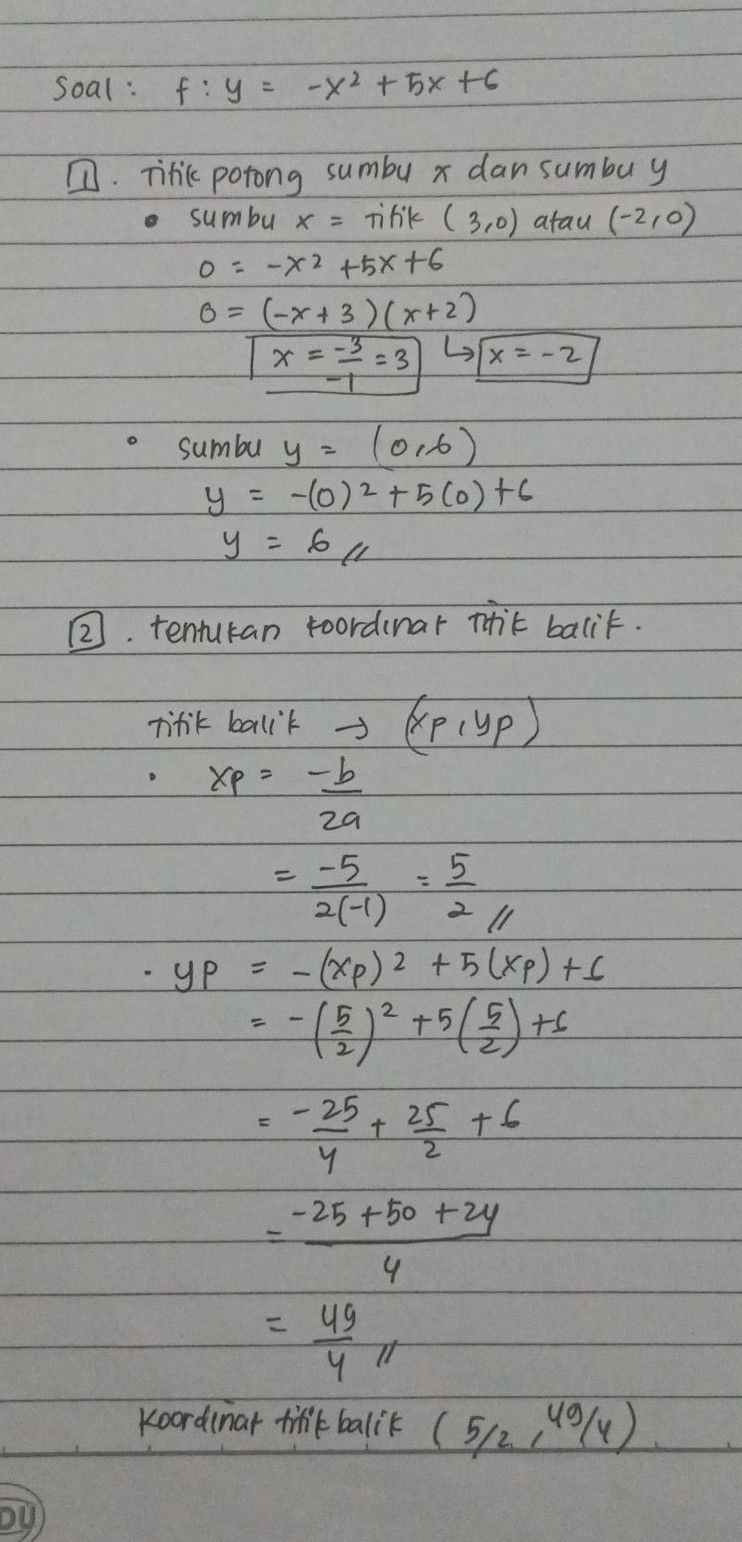 Soal : f : y = -x² + 5x + 6
1. Titik potong sumbu x dan sumbu y
• sumbu x = Titik (3,0) atau (-2,0)
0 = -x² + 5x + 6
0 = (-x + 3)(x + 2)
x = -3/-1 = 3 ↳ x = -2
• sumbu y = (0,6)
y = -(0)² + 5(0) + 6
y = 6 //
2. tentukan koordinat titik balik.
Titik balik → (xp, yp)
• xp = -b/2a
= -5/2(-1) = 5/2 //
• yp = -(xp)² + 5(xp) + 6
= -(5/2)² + 5(5/2) + 6
= -25/4 + 25/2 + 6
= -25 + 50 + 24/4
= 49/4 //
Koordinat titik balik (5/2, 49/4)
DU